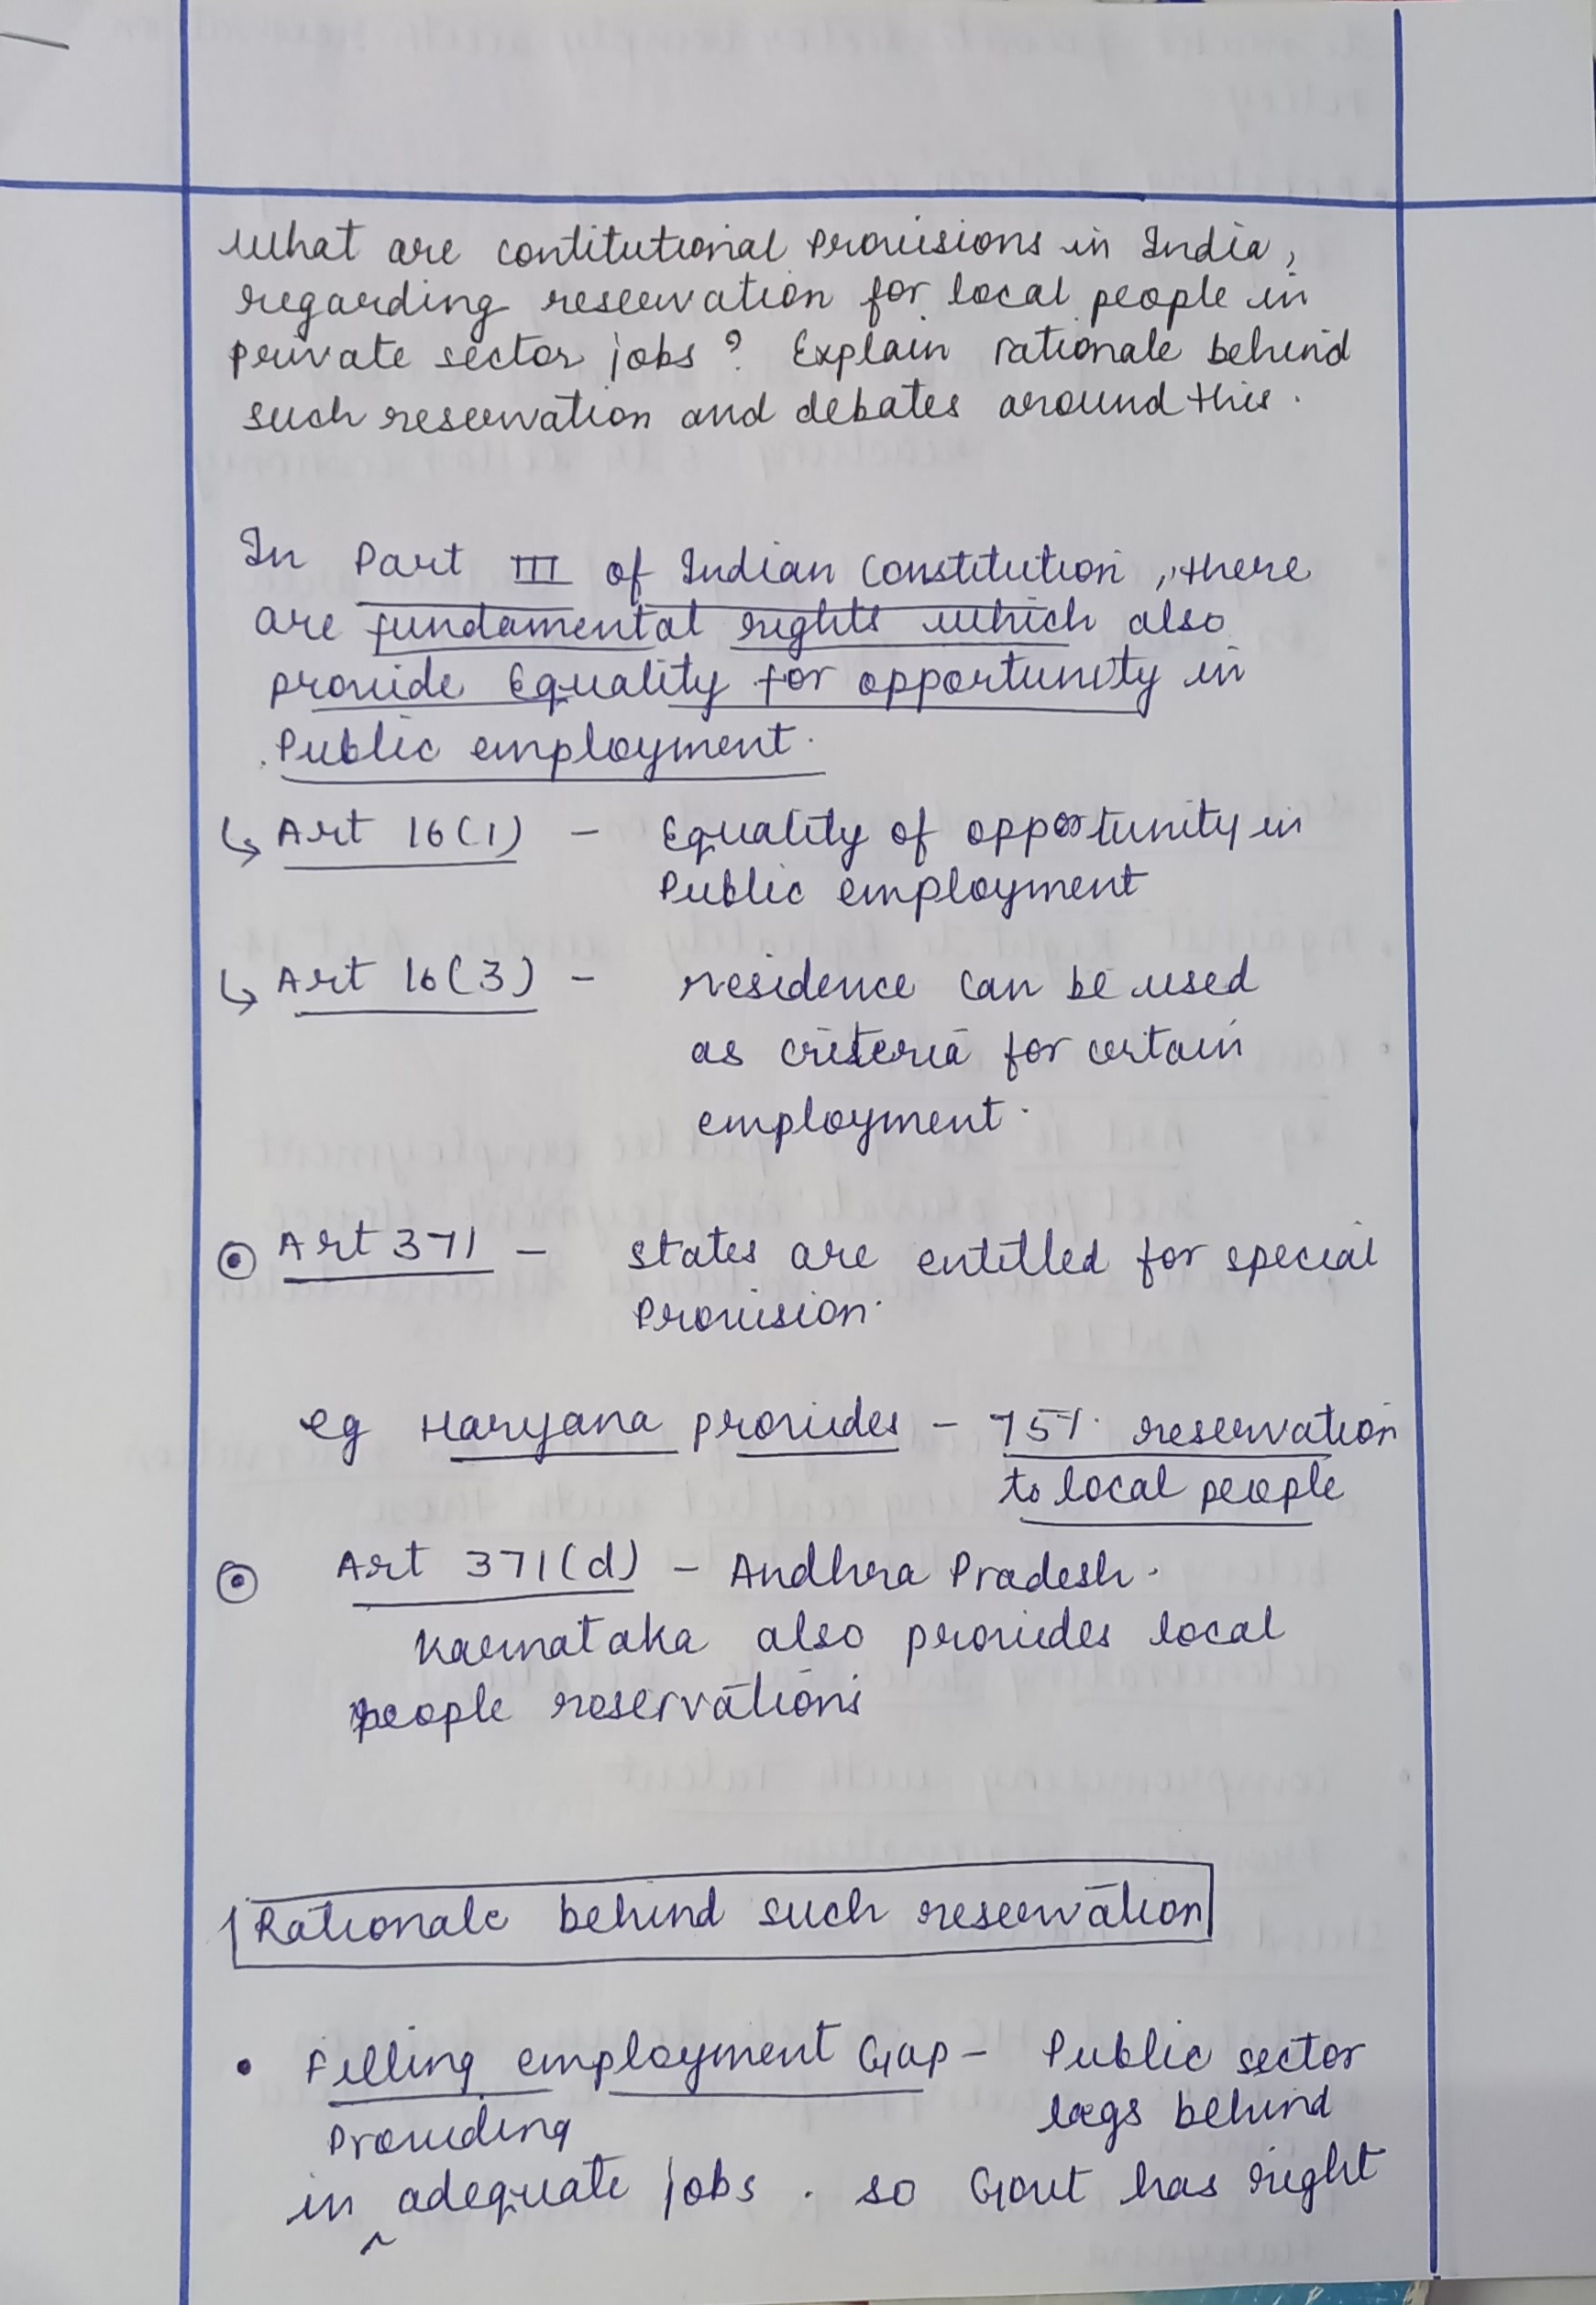 What are contitutional provisions in India,
regarding reservation for local people in
private sector jobs? Explain rationale behind
such reservation and debates around this.
In Part III of Indian Constitution, there
are fundamental rights which also
provide Equality for opportunity in
Public employment.
↳ Art 16(1) - Equality of opportunity in
Public employment
↳ Art 16(3) - residence can be used
as criteria for certain
employment.
Art 371 - states are entitled for special
Provision.
eg Haryana provides - 75% reservation
to local people
Art 371(d) - Andhra Pradesh.
Karnataka also provides local
people reservations
Rationale behind such reservation
• Filling employment Gap - Public sector
lags behind
Providing
in ^ adequate jobs. so Govt has right